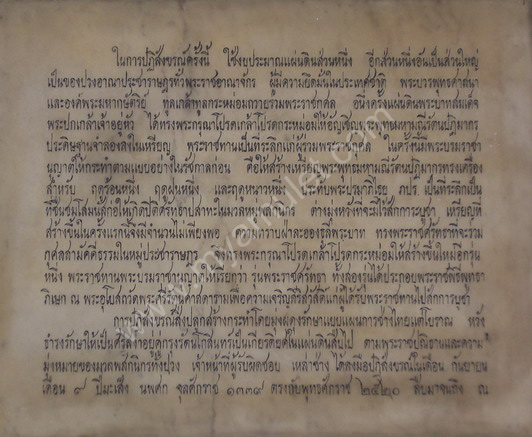 ในการปฏิสังขรณ์ครั้งนี้ ใช้งบประมาณแผ่นดินส่วนหนึ่ง อีกส่วนหนึ่งอันเป็นส่วนใหญ่
เป็นของปวงอาณาประชาราษฎรทั่วพระราชอาณาจักร ผู้มีความยึดมั่นในประเทศชาติ พระบวรพุทธศาสนา
และองค์พระมหากษัตริย์ ทูลเกล้าทูลกระหม่อมถวายร่วมพระราชกุศล อนึ่งครั้งแผ่นดินพระบาทสมเด็จ
พระปกเกล้าเจ้าอยู่หัว ได้ทรงพระกรุณาโปรดเกล้าโปรดกระหม่อมให้อัญเชิญพระพุทธมหามณีรัตนปฏิมากร
ประดิษฐานจำลองลงในเหรียญ พระราชทานเป็นที่ระลึกแก่ผู้ร่วมพระราชกุศล ในครั้งนี้มีพระบรมราชา
นุญาตให้กระทำตามแบบอย่างในรัชกาลก่อน คือให้สร้างเหรียญพระพุทธมหามณีรัตนปฏิมากรทรงเครื่อง
สำหรับ ฤดูร้อนหนึ่ง ฤดูฝนหนึ่ง และฤดูหนาวหนึ่ง ประทับพระปรมาภิไธย ภปร เป็นที่ระลึกเป็น
ที่ชื่นชมโสมนัสก่อให้เกิดปีติศรัทธาปสาทะในมวลหมู่พสกนิกร ต่างมุ่งหวังที่จะมีไว้สักการะบูชา เหรียญที่
สร้างขึ้นในครั้งแรกนี้จึงมีจำนวนไม่เพียงพอ ความทราบฝ่าละอองธุลีพระบาท ทรงพระราชศรัทธาที่จะรวม
กุศลสามัคคีธรรมในหมู่ประชาราษฎร จึงทรงพระกรุณาโปรดเกล้าโปรดกระหม่อมให้สร้างขึ้นใหม่อีกรุ่น
หนึ่ง พระราชทานพระบรมราชานุญาตให้เรียกว่า รุ่นพระราชศรัทธา ทั้งสองรุ่นได้ประกอบพระราชพิธีพุทธา
ภิเษก ณ พระอุโบสถวัดพระศรีรัตนศาสดารามเพื่อความเจริญสิริสวัสดิ์แก่ผู้ได้รับพระราชทานไปสักการบูชา
การปฏิสังขรณ์สิ่งปลูกสร้างกระทำโดยมุ่งผดุงรักษาแบบแผนการช่างไทยแต่โบราณ หวัง
ธำรงรักษาให้เป็นศรีสง่าอยู่คู่กรุงรัตนโกสินทร์เป็นเกียรติยศในแผ่นดินสืบไป ตามพระราชปณิธานและความ
มุ่งหมายของมวลพสกนิกรทั้งปวง เจ้าหน้าที่ผู้รับผิดชอบ เหล่าช่างได้ลงมือปฏิสังขรณ์ในเดือน กันยายน
เดือน ๙ ปีมะเส็ง นพศก จุลศักราช ๑๓๓๙ ตรงกับพุทธศักราช ๒๕๒๐ สืบมาจนถึง ณ